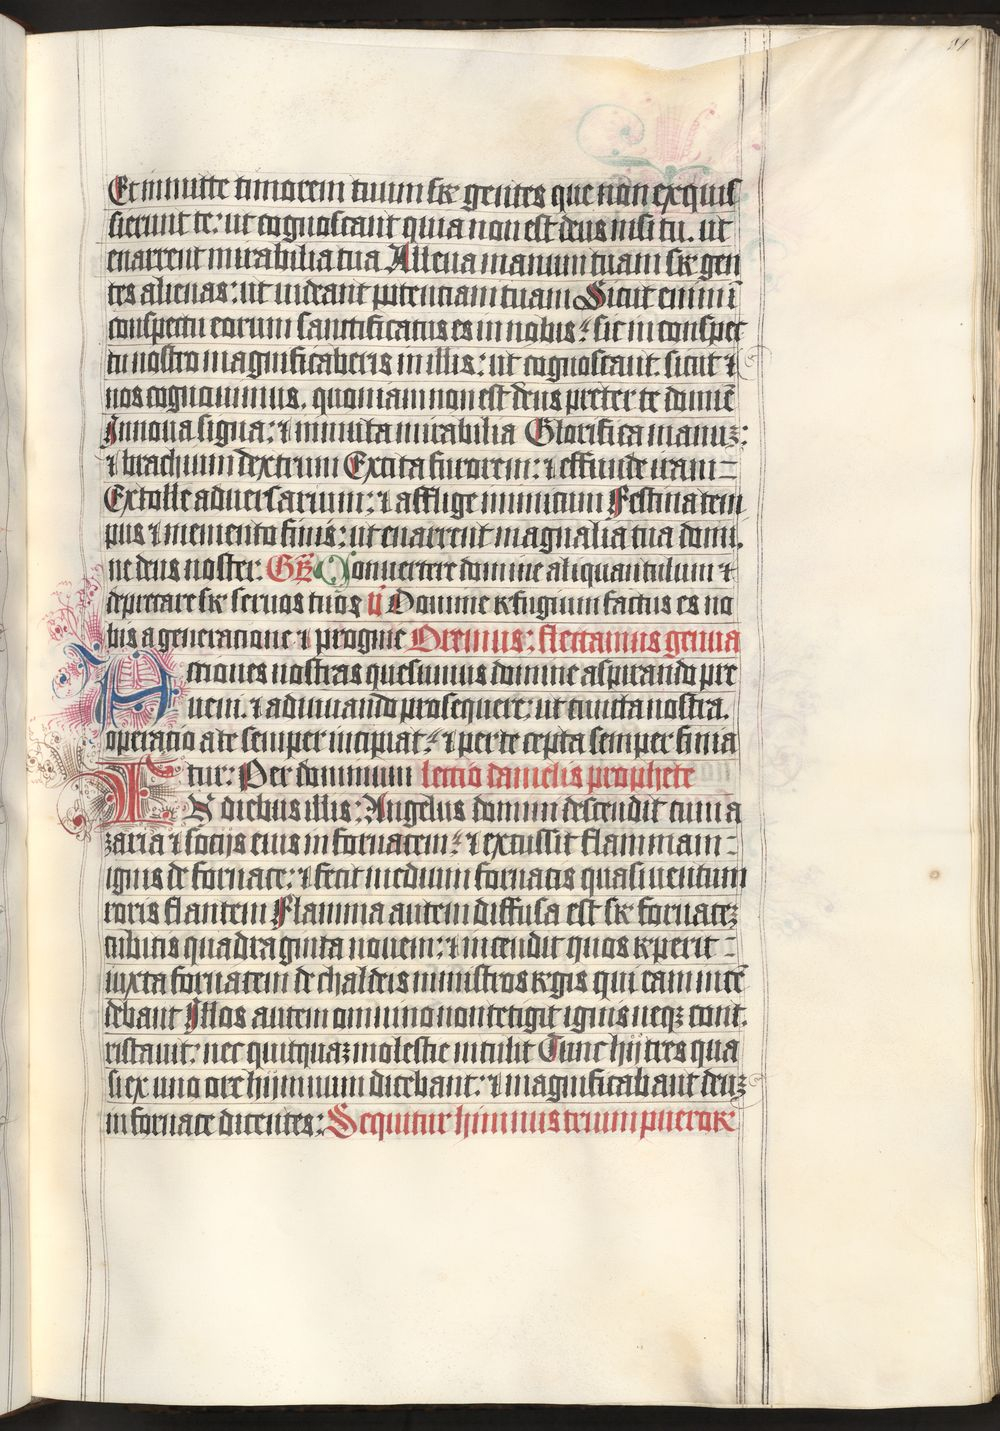 Et inmitte timorem tuum sr gentes que non exquis
sierunt te: ut cognoscant quia non est deus nisi tu. ut
enarrent mirabilia tua Alleua manum tuam sr gen
tes alienas: ut uideant potenciam tuam Sicut enim ī
conspectu eorum sanctificatus es in nobis: sic in conspec
tu nostro magnificaberis in illis: ut cognoscant. sicut ⁊
nos cognouimus. quoniam non est deus preter te domiē
Innoua signa: ⁊ inmuta mirabilia Glorifica manuʒ:
⁊ brachium dextrum Excita furorem: ⁊ effunde iram
Extolle aduersarium: ⁊ afflige inimicum Festina tem
pus ⁊ memento finis: ut enarrent magnalia tua domi.
ne deus noster. GR Conuertere domine aliquantulum ⁊
deprecare sr seruos tuoꝝ V Domine refugium factus es no
bis a generatione ⁊ progenie Oremus: flectamus genua
Actiones nostras quesumus domine aspirando pre
ueni. ⁊ adiuuando prosequere: ut cuncta nostra.
operacio a te semper incipiat: ⁊ per te cepta semper finia
tur: Per dominum lectio danielis prophete
IN diebus illis: Angelus domini descendit cum a
zaria ⁊ socijs eius in fornacem: ⁊ excussit flammam
ignis de fornace: ⁊ fecit medium fornacis quasi uentum
roris flantem Flamma autem diffusa est sr fornaceʒ
cubitis quadraginta nouem: ⁊ incendit quos reperit
iuxta fornacem de chaldeis ministros regis qui eam incē
debant Illos autem omnino non tetigit ignis neqʒ cont.
ristauit: nec quicquaʒ molestie intulit Tunc hij tres qua
si ex uno ore hijmnum dicebant: ⁊ magnificabant deuʒ
in fornace dicentes: Sequitur himnus trium pueroꝝ